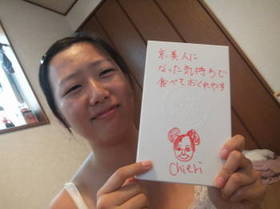 京美人に
なった気持ちで
食べておくれやす
Chieri